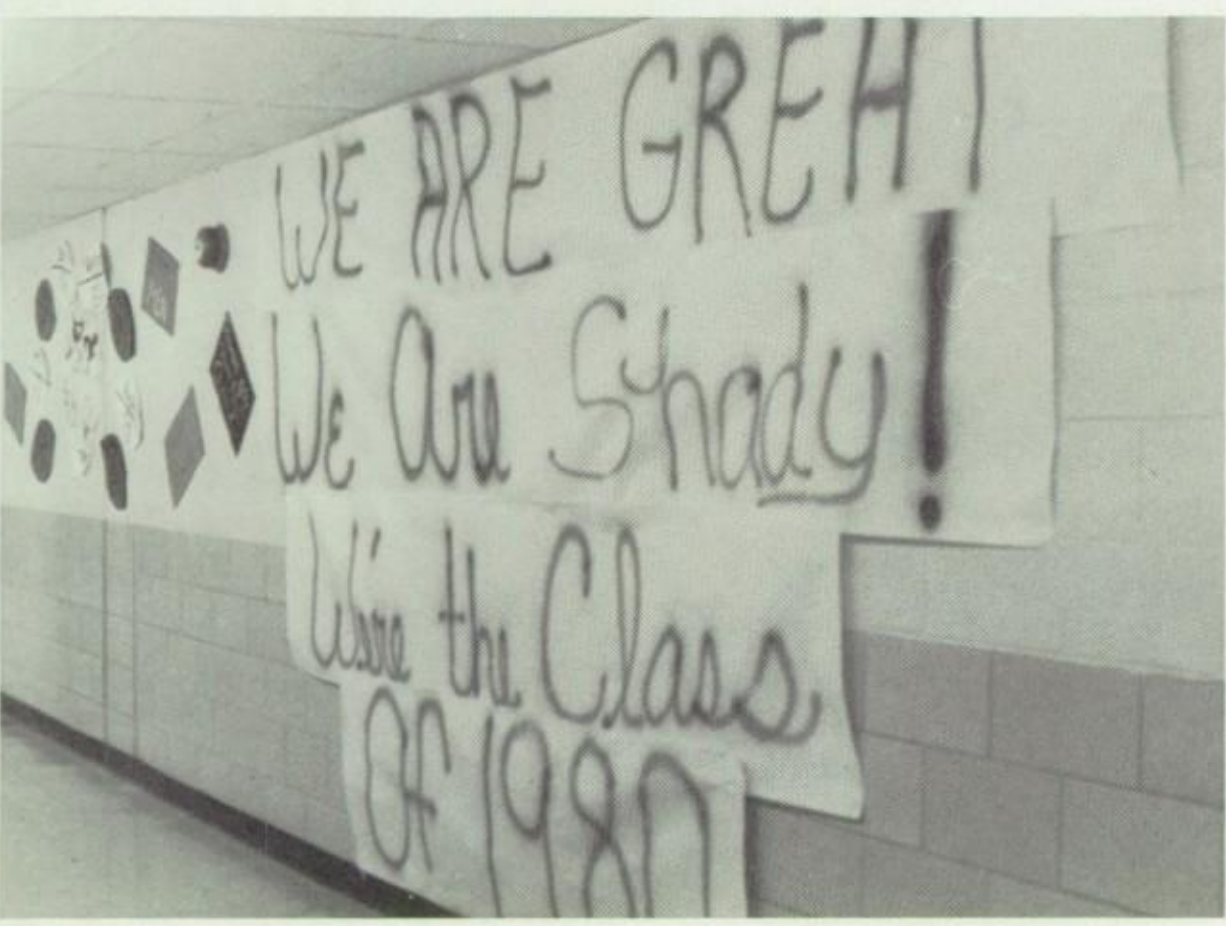 WE ARE GREAT
We Are Shady!
We're the Class
Of 1980